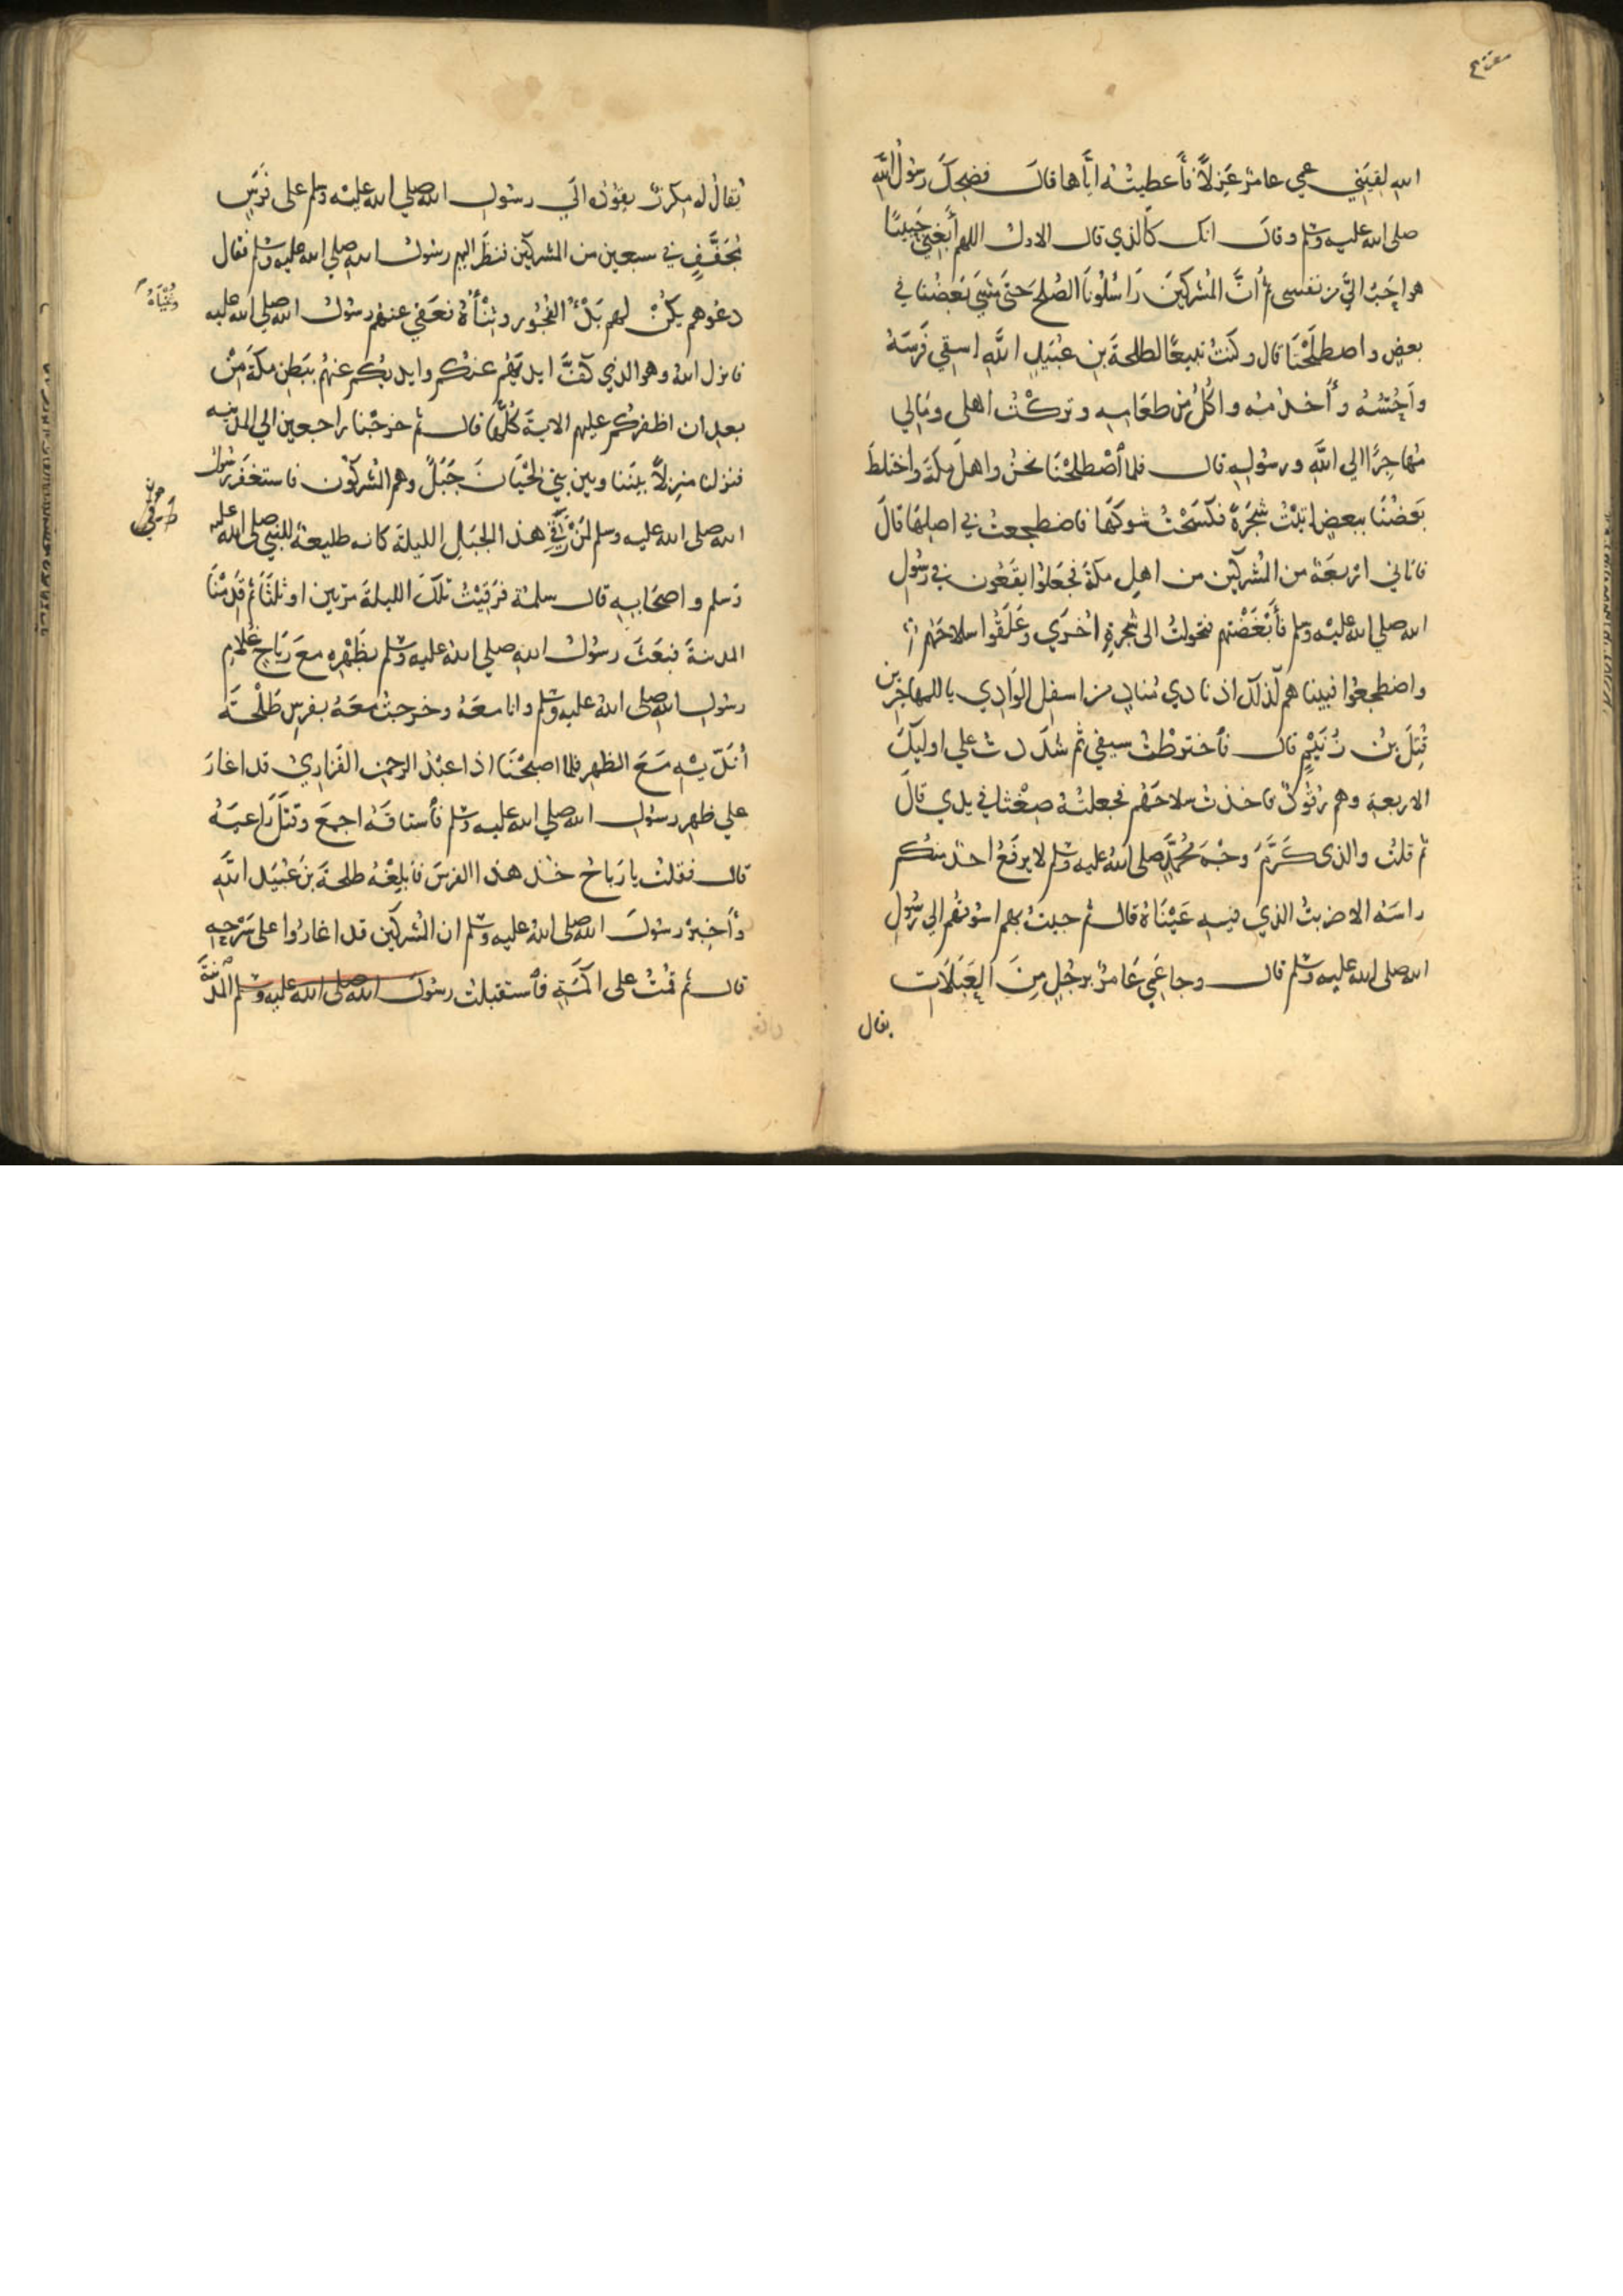 الله لقيني عمي عامر عَزِلاً فأعطيته ايَّاها قال فضحك رسُولُ اللَّه
صلى الله عليه وسلم وقال انك كالذي قال الاول اللهم أَبغِني حَبِيبًا
هو احَبُّ اليَّ من نفسى ثم اُنَّ المُشركينَ رَاسَلُونَا الصُلحَ حَتىَ مَشَىَ بَعضُنا في
بعضٍ واصطلَحْنَا قال وكنتُ تبيعًا لطلحةَ بنِ عُبَيدِ اللَّهِ اسقي فَرَسَهُ
واَحُسُّهُ وأَخدُمُه واكُلُ من طعَامِهِ وتركتُ اهلى ومَالِي
مُهاجِرًا الي اللَّهِ ورسُولِهِ قال فلما اصْطلحْنَا نحنُ واهلَ مكةَ واختلطَ
بَعضُنَا ببعضٍ اتيْتُ شَجَرَةً فكَسَحْتُ شوكَهَا فاضطجعتُ في اصلِهَا قالَ
فاتاني اربعَة من المُشركين من اهلِ مكةَ فجَعَلوا يقَعُون في رسُولِ
الله صلى الله عليه وسلم فأَبْغَضْتهم فتحولتُ الى شجرةٍ اُخرَي وعَلَّقُوا سلاحَهُم
واضطجعُوا فبينا هم كَذلكَ اذ نادي مُنادٍ من اسفلِ الوَادِي ياللمهاجرين
قُتِلَ بنُ زُنَيْمٍ قال فاخترطْتُ سيفي ثم شَدَدتُ علي اوليكَ
الاربعةِ وهم رقُودٌ فاخذتُ سلاحَهُم فجعلتُهُ ضِغْثًا في يدي قالَ
ثم قلتُ والذى كَرَّمَ وجْهَ مُحمَّدٍ صلى الله عليه وسلم لا يرفَعُ احدٌ منكم
راسَهُ الا ضربتُ الذي فيهِ عَيْنَاهُ قال ثم جيتُ بهم اسُوقهُم الي رَسُولِ
الله صلى الله عليه وسلم قال وجا عَمِّي عَامرٌ برجُلٍ مِنَ العَبَلَاتِ
يقال
يُقالُ له مِكرَزٌ يقُودُه الَي رسُولِ الله صلي الله عليه وسلم على فَرَسٍ
مُجَفَّفٍ في سبعين من المشركين فنظرَ اليهم رسُولُ الله صلي الله عليه وسلم فقال
دعُوهم يكُنْ لهم بَدْءُ الفُجُور وثِنْاهُ فعَفي عنهُم رسُولُ الله صلي الله عليه
فانزل اللهُ وهو الذي كَفَّ ايديَهُم عنكم وايديكُم عنهُم ببَطنِ مكةَ مِنْ
بعدِ ان اظفركُم عليهم الايةَ كُلَّهَا قال ثم خرجْنا راجعين الي المدينه
فنزلنا منزِلاً بينَنا وبين بني لحْيَانَ جَبَلٌ وهم المُشركُون فاستغفَرَ رسُولُ
الله صلى الله عليه وسلم لمَنْ رَقِيَ هذا الجبَلِ الليلةَ كانه طليعة للنبي صلى الله عليه
وَسلم واصحَابِهِ قال سلمة فرَقَيْتُ تلكَ الليلةَ مرَّتين او ثلثًا ثم قَدِمْنَا
المدينةَ فبَعَثَ رسُولُ اللهِ صلي اللهُ عليه وسلم بظَهْرِه معَ رَبَاحٍ غُلامِ
رسُولِ الله صلى اللهُ عليه وسلم وانا معَهُ وخرجتُ معَهُ بفرسِ طَلْحَةَ
أُنَدِّيْهِ مَعَ الظهرِ فلما اصبحْنَا اذا عبدُ الرحمنِ الفَزَاريُّ قد اغارَ
علي ظهرِ رسُولِ الله صلي الله عليه وسلم فأستاقَهُ اجمعَ وقتَلَ رَاعيَهُ
قال فقلتُ يا رَبَاحُ خُذ هذا الفرسَ فَابلِغْهُ طلحةَ بنَ عُبَيدِ اللَّهِ
وأَخبِرْ رسُولَ الله صلى اللهُ عليه وسلم ان المُشركين قد اغارُوا على سَرْحِهِ
قال ثم قمْتُ على اَكَمَةٍ فأستقبلتُ رسُولَ الله صلى الله عليه وسلم المدينَةَ
وثِنَاهُ